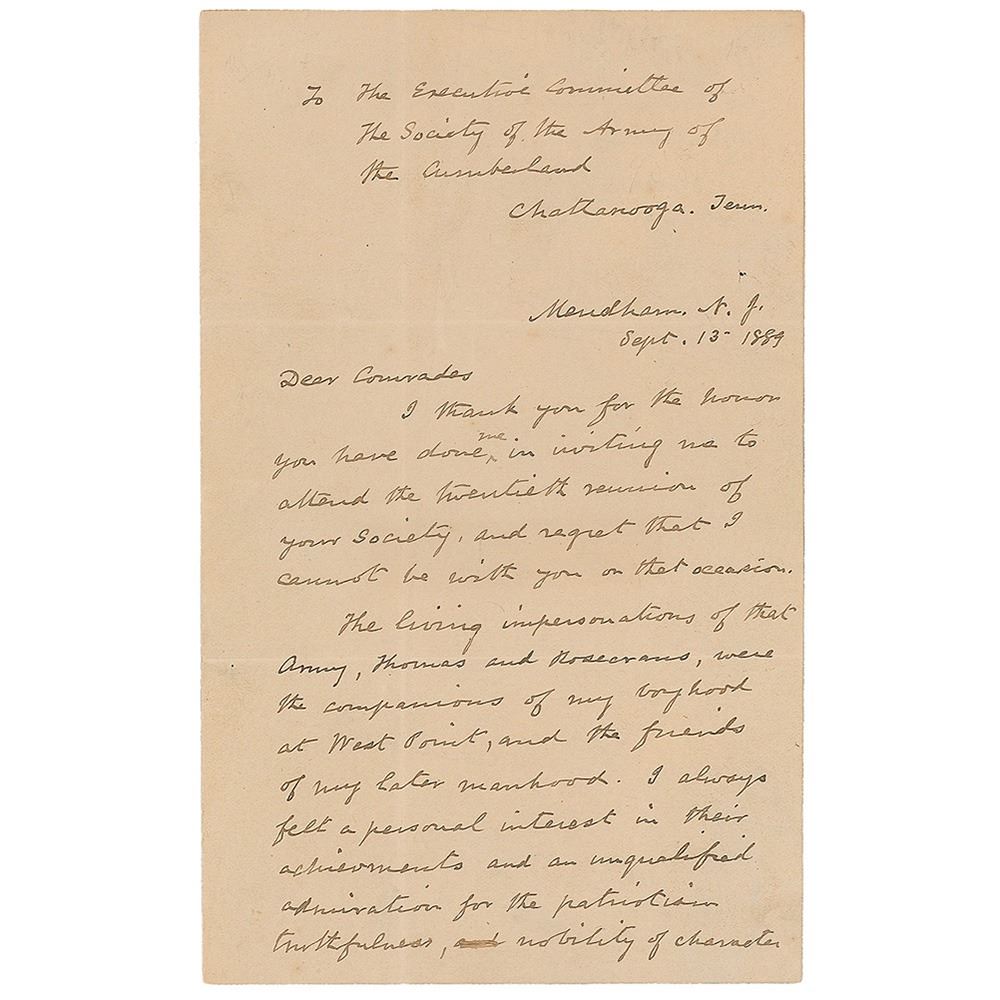 To The Executive Committee of
The Society of the Army of
the Cumberland
Chattanooga. Tenn.
Mendham. N. J.
Sept. 13 1889
Dear Comrades
I thank you for the honor
you have done me in inviting me to
attend the twentieth reunion of
your Society, and regret that I
cannot be with you on that occasion.
The living impersonations of that
Army, Thomas and Rosecrans, were
the companions of my boyhood
at West Point, and the friends
of my later manhood. I always
felt a personal interest in their
achievments and an unqualified
admiration for the patriotism
truthfulness, and nobility of character